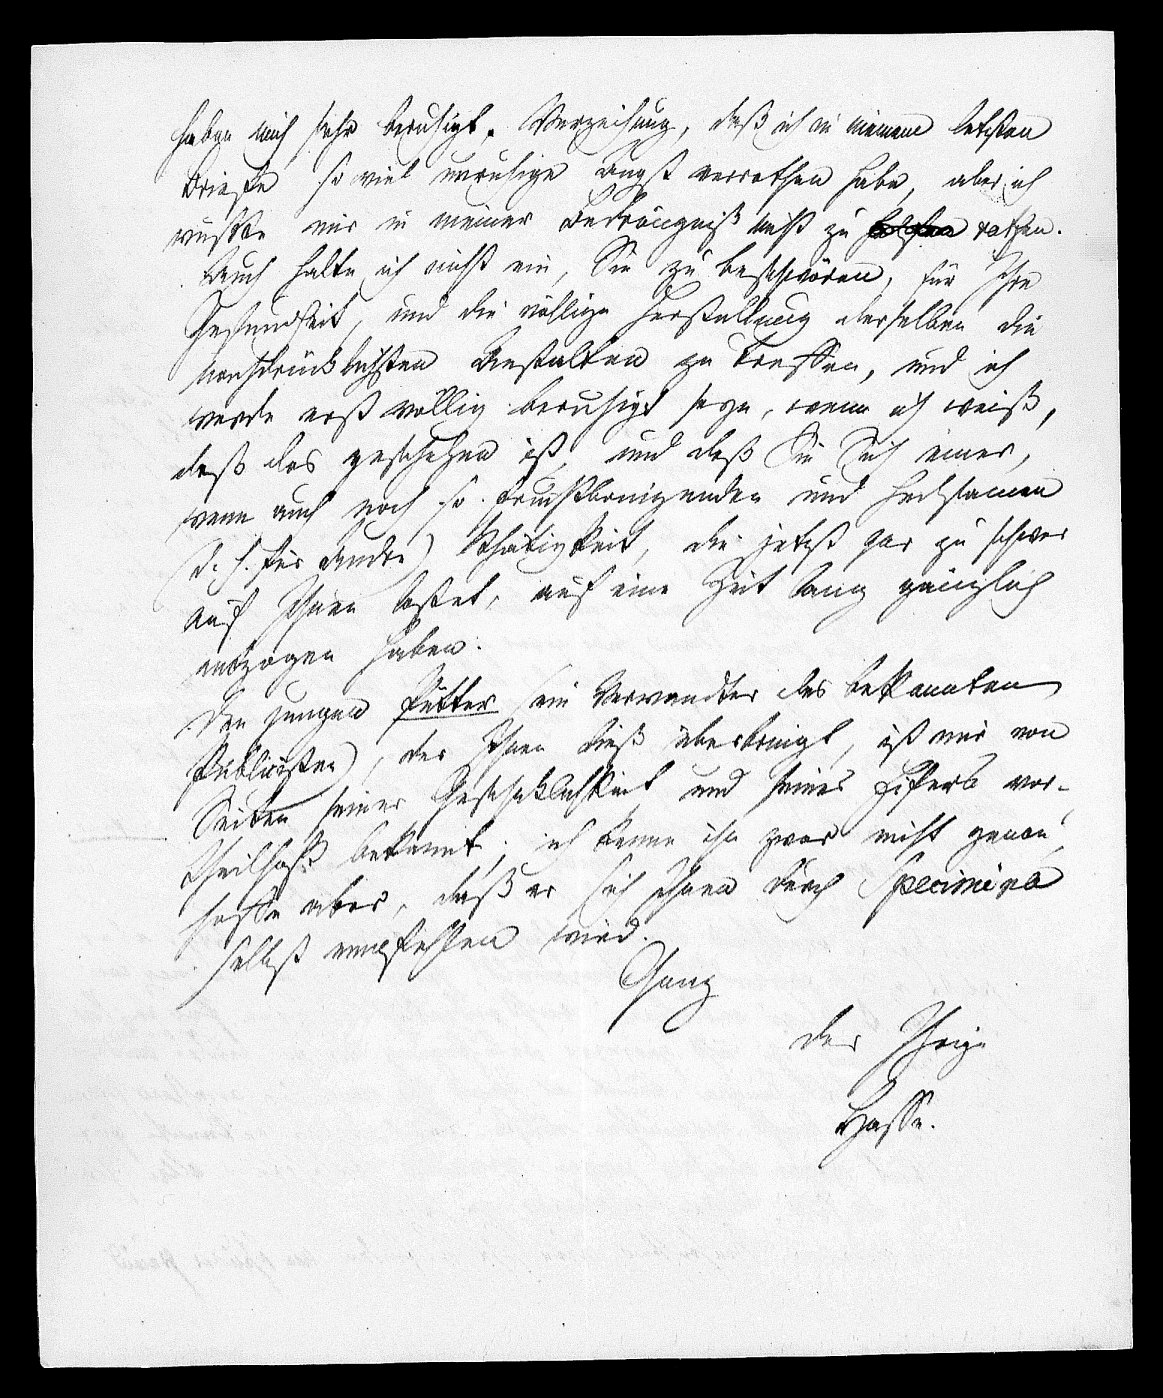 haben mich sehr beruhigt. Verzeihung, daß ich in meinem letzten
Briefe so viel unruhige Angst verrathen habe, aber ich
wußte mir in meiner Bedrängniß nicht zu helfen rathen.
Auch halte ich nicht ein, Sie zu beschwören, für Ihre
Gesundheit, und die völlige Herstellung derselben die
nachdrücklichsten Anstalten zu treffen, und ich
werde erst völlig beruhigt seyn, wenn ich weiß,
daß das geschehen ist, und daß Sie Sich einer,
wenn auch noch so fruchtbringenden und heilsamen
(d. h. für Andre) Thätigkeit, die jetzt gar zu schwer
auf Ihnen lastet, auf eine Zeit lang gänzlich
entzogen haben.
Den jungen Pütter (ein Verwandter des bekannten
Publicisten), der Ihnen dieß überbringt, ist mir von
Seiten seiner Geschicklichkeit und seines Eifers vor-
theilhaft bekannt; ich kenne ihn zwar nicht genau,
hoffe aber, daß er sich Ihnen durch Specimina
selbst empfehlen wird.
Ganz
der Ihrige
Hasse.